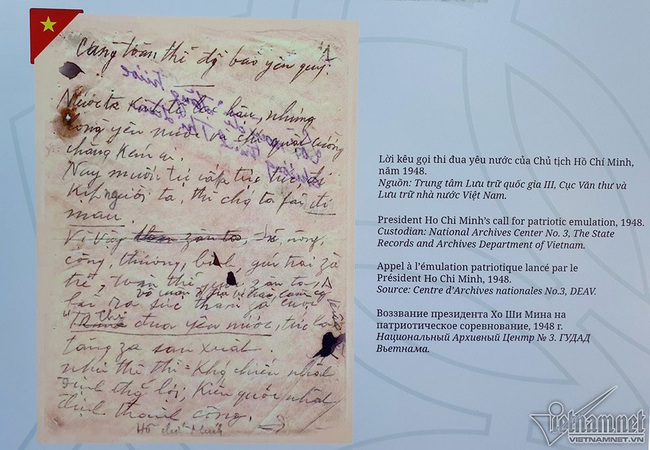 Cùng toàn thể đồ bào yêu quý:
Nước ta kinh tế lạc hậu, nhưng
lòng yêu nước và chí quật cường
chẳng kém ai.
Nay muốn tự cấp túc, để
kịp người ta, thì ta fải đi
mau.
Vì vậy zân ta, sĩ, nông,
công, thương, binh, gái trai zà
trẻ, toàn thể zân ta,
fải ra sức tham za cuộc
Thi đua yêu nước, tức là
tăng za sản xuất.
như thế thì: Khg chiến nhất
định thg lợi, Kiến quốc nhất
định thành công.
Hồ chí Minh
Lời kêu gọi thi đua yêu nước của Chủ tịch Hồ Chí Minh,
năm 1948.
Nguồn: Trung tâm Lưu trữ quốc gia III, Cục Văn thư và
Lưu trữ nhà nước Việt Nam.
President Ho Chi Minh's call for patriotic emulation, 1948.
Custodian: National Archives Center No. 3, The State
Records and Archives Department of Vietnam.
Appel à l'émulation patriotique lancé par le
Président Ho Chi Minh, 1948.
Source: Centre d'Archives nationales No.3, DEAV.
Воззвание президента Хо Ши Мина на
патриотическое соревнование, 1948 г.
Национальный Архивный Центр № 3. ГУДАД
Вьетнама.
vietnamnet
VIETNAMNET.VN